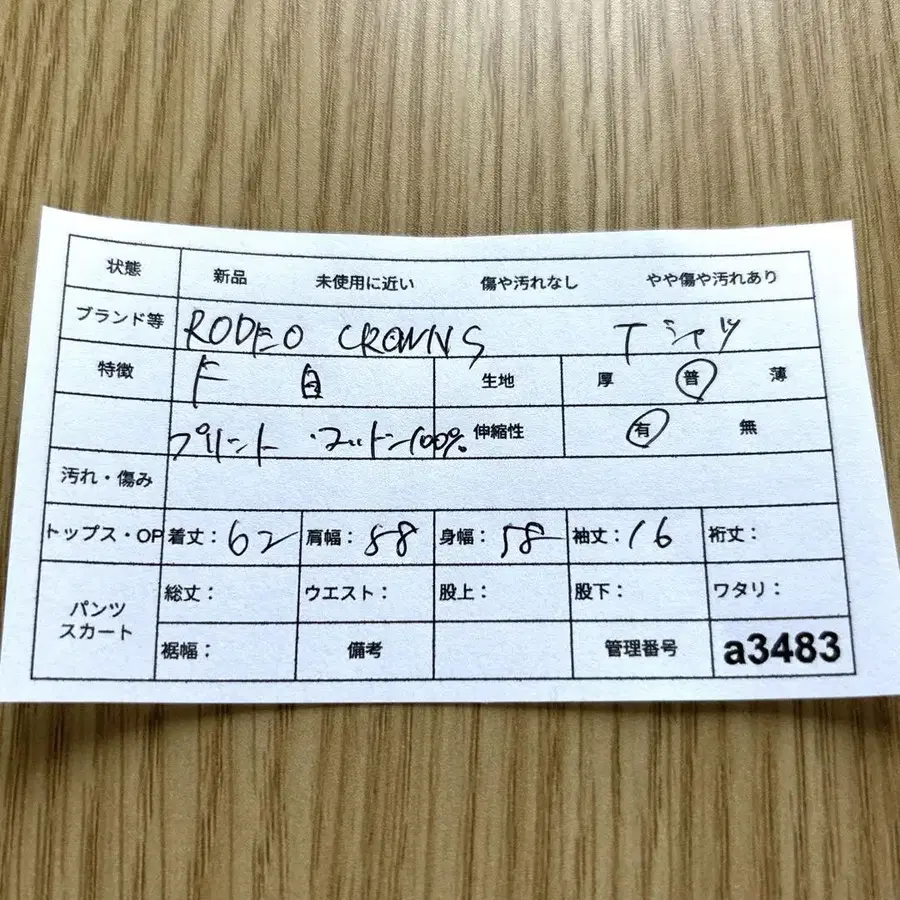 状態 新品 未使用に近い 傷や汚れなし やや傷や汚れあり
ブランド等 RODEO CROWNS Tシャツ
特徴 F 白 生地 厚 普 薄
プリント ・コットン100% 伸縮性 有 無
汚れ・傷み
トップス・OP 着丈：62 肩幅：58 身幅：58 袖丈：16 裄丈：
パンツ スカート 総丈： ウエスト： 股上： 股下： ワタリ：
裾幅： 備考 管理番号 a3483